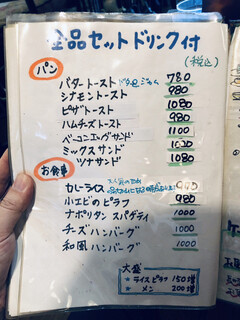 全品セットドリンク付
(税込)
パン
バタートースト 780
シナモントースト 980
ピザトースト 1080
ハムチーズトースト 980
ベーコンエッグサンド 1100
ミックスサンド
ツナサンド 1080
お食事
カレーライス
小エビのピラフ 980
ナポリタンスパゲティ 1000
チーズハンバーグ 1000
和風ハンバーグ 1000
大盛
★ライスピラフ 150増
★メン 200増